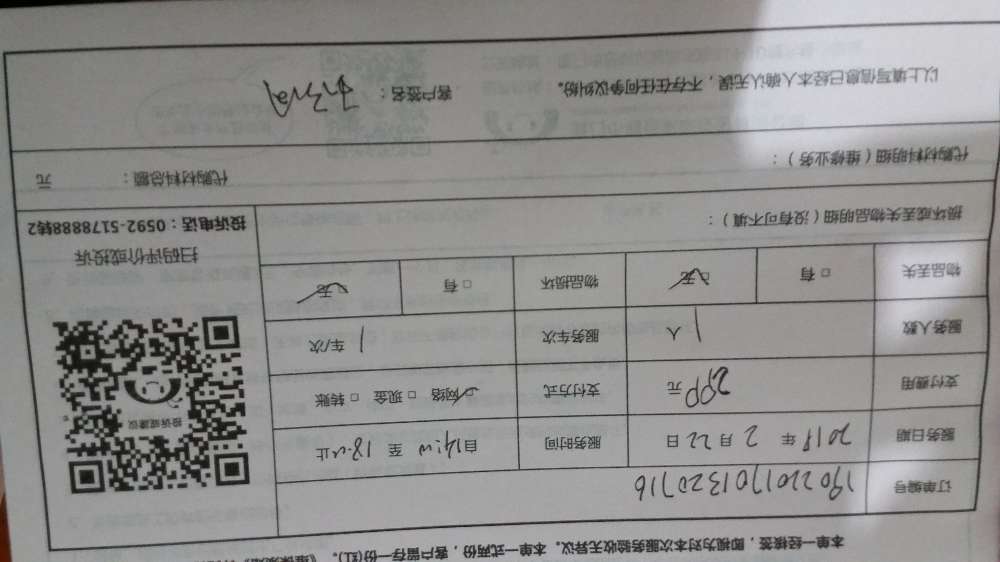 本单一经接签，即视为对本次服务验收无异议。本单一式两份，客户留存一份(红)。
订单编号 190220170132071б
服务日期 2019 年 2 月 22 日 服务时间 自14:00 至 18:00止
支付费用 200元 支付方式 ☑网络 □ 现金 □ 转账
服务人数 1 人 服务车次 1 车/次
物品丢失 □ 有 ☑无 物品损坏 □ 有 ☑无
投诉或建议
扫码评价或投诉
投诉电话：0592-5178888转2
损坏或丢失物品明细（没有可不填）：
代购材料明细（维修业务）： 代购材料总额： 元
以上填写信息已经本人确认无误，不存在任何争议纠纷。 客户签名：